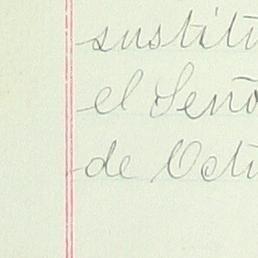 sustitu
el Seño
de Octu